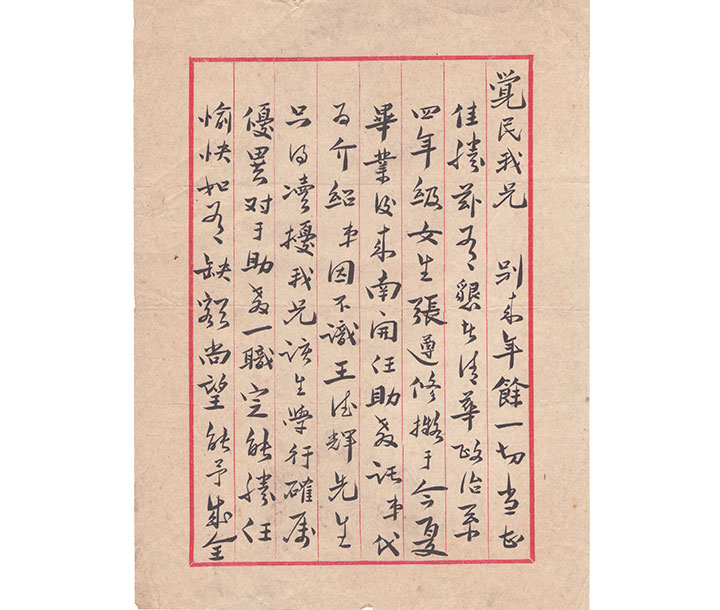 覚民我兄 别来年餘一切当甚
佳勝兹有懇者清華政治系
四年級女生張遵修擬于今夏
畢業後来南開任助教託弟代
为介紹弟因不識王德輝先生
只得瀆擾我兄该生学行確属
優異对于助教一職定能勝任
愉快如有缺额尚望能予成全